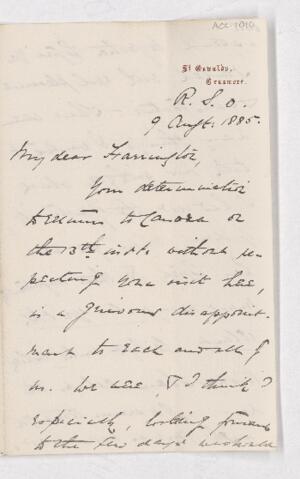 ACC-1010
St Oswalds,
Grasmere.
R. S. O.
9 Augt: 1885.
My dear Harrington,
Your determination
to return to Canada on
the 13th inst: without re-
peating your visit here,
is a grievous disappoint-
ment to each and all of
us. We are, & I think I
especially, looking forward
to the few days we would